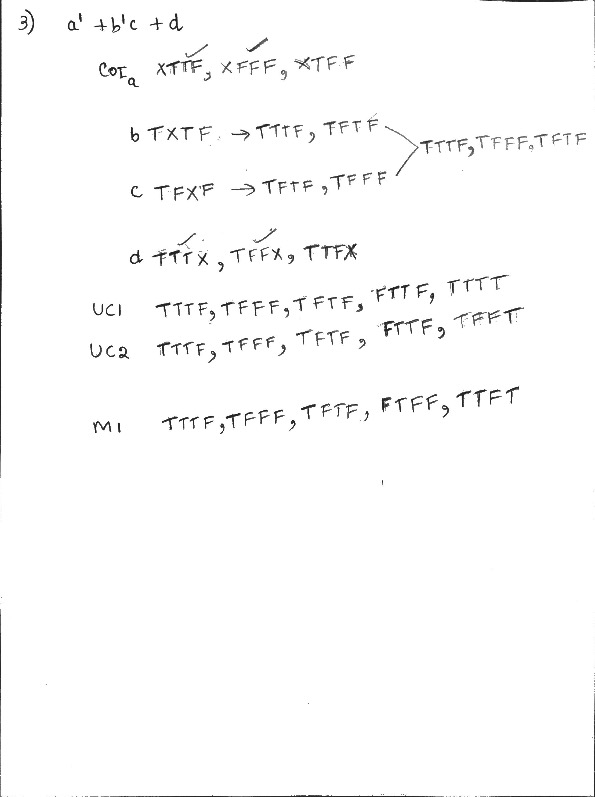 3) a' + b'c + d
Cor_a XTTF, XFFF, XTFF
b TXTF → TTTF, TFTF
TTTF, TFFF, TFTF
c TFXF → TFTF, TFFF
d FTTX, TFFX, TTFX
UC1 TTTF, TFFF, TFTF, FTTF, TTTT
UC2 TTTF, TFFF, TFTF, FTTF, TFFT
M1 TTTF, TFFF, TFTF, FTFF, TTFT